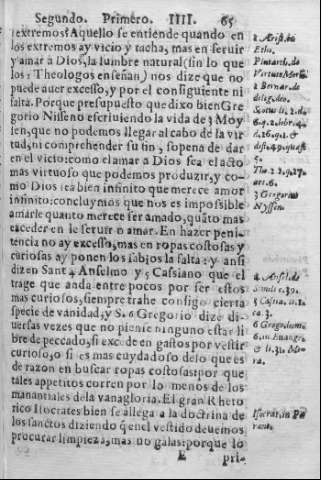 Segundo. Primero. IIII. 65
extremos? Aquello se entiende quando en
los extremos ay vicio y tacha, mas en seruir
y amar à Dios, la lumbre natural (sin lo que
los 1 Theologos enseñan) nos dize que no
puede auer excesso, y por el consiguiente ni
falta. Porque presupuesto que dixo bien Gre
gorio Nisseno escriuiendo la vida de 3 Moy
sen, que no podemos llegar al cabo de la vir
tud, ni comprehender su fin, sopena de dar
en el vicio: como el amar a Dios sea el acto
mas virtuoso que podemos produzir, y co-
mo Dios sea bien infinito que merece amor
infinito: concluymos que nos es impossible
amarle quanto merece ser amado, quãto mas
exceder en le seruir o amar. En hazer peni-
tencia no ay excesso, mas en ropas costosas y
curiosas ay ponen los sabios la falta: y ansi
dizen Sant 4 Anselmo y 5 Cassiano que el
trage que anda entre pocos por ser estos
mas curiosos, siempre trahe consigo cierta
specie de vanidad, y S. 6 Gregorio dize di-
uersas vezes que no piense ninguno estar li
bre de peccado, si excede en gastos por vestir
curioso, o si es mas cuydadoso de lo que es
de razon en buscar ropas costosas: por que
tales appetitos corren por lo menos de los
manantiales de la vanagloria. El gran Rheto
rico Isocrates bien se allega a la doctrina de
los sanctos diziendo q̃ en el vestido deuemos
procurar limpieza, mas no galas: porque lo
E pri-
2 Arist. in
Ethi.
Plutarch. de
Virtute Mor.
2 Bernar. de
dilig. deo.
5.
Tho. 2. 2. q. 27.
art. 6.
3 Gregorius
Nyssen.
4 Ansel. de
5 Cassia. li. 1.
ca. 3.
6 Gregor. homi.
6. in Euang.
& li. 31. Mo-
ra.
Isocrat. in Pa